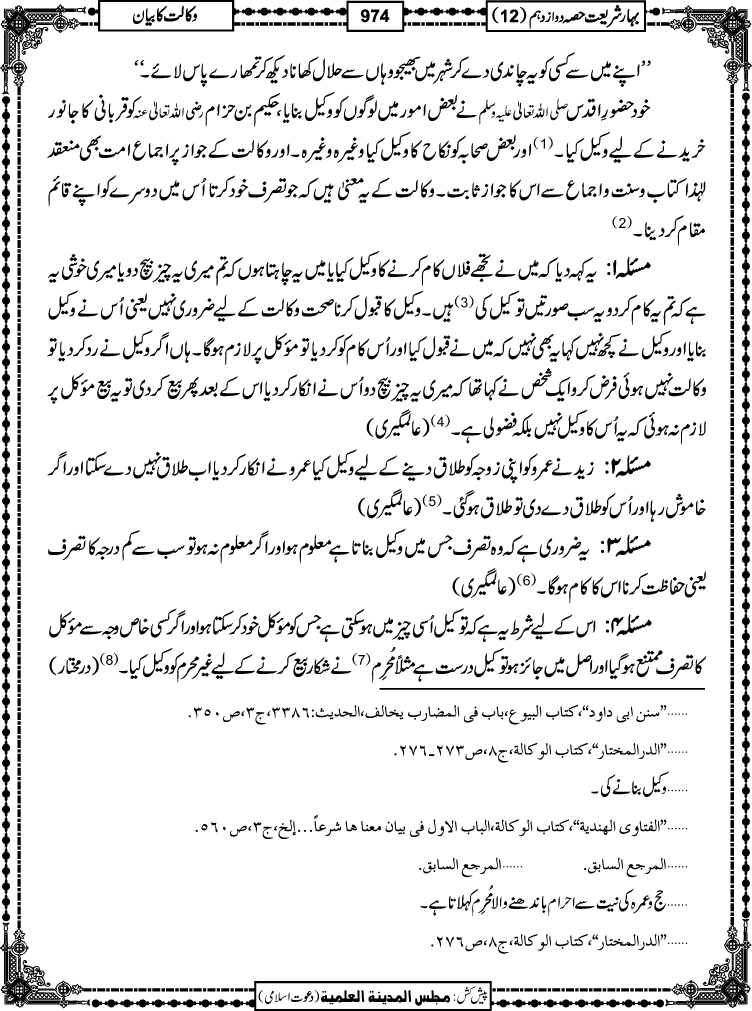 بہار شریعت حصہ دوازدہم (12)
974
وکالت کا بیان
’’اپنے میں سے کسی کو یہ چاندی دے کر شہر میں بھیجو وہاں سے حلال کھانا دیکھ کر تمھارے پاس لائے۔‘‘
خود حضورِ اقدس صلی اللہ تعالیٰ علیہ وسلم نے بعض امور میں لوگوں کو وکیل بنایا، حکیم بن حزام رضی اللہ تعالیٰ عنہ کو قربانی کا جانور
خریدنے کے لیے وکیل کیا۔(1) اور بعض صحابہ کو نکاح کا وکیل کیا وغیرہ وغیرہ۔ اور وکالت کے جواز پر اجماع امت بھی منعقد
لہٰذا کتاب وسنت واجماع سے اس کا جواز ثابت۔ وکالت کے یہ معنیٰ ہیں کہ جو تصرف خود کرتا اُس میں دوسرے کو اپنے قائم
مقام کر دینا۔(2)
مسئلہ ۱: یہ کہہ دیا کہ میں نے تجھے فلاں کام کرنے کا وکیل کیا یا میں یہ چاہتا ہوں کہ تم میری یہ چیز بیچ دو یا میری خوشی یہ
ہے کہ تم یہ کام کر دو یہ سب صورتیں توکیل کی(3) ہیں۔ وکیل کا قبول کرنا صحت وکالت کے لیے ضروری نہیں یعنی اُس نے وکیل
بنایا اور وکیل نے کچھ نہیں کہا یہ بھی نہیں کہ میں نے قبول کیا اور اُس کام کو کر دیا تو مؤکل پر لازم ہوگا۔ ہاں اگر وکیل نے رد کر دیا تو
وکالت نہیں ہوئی فرض کرو ایک شخص نے کہا تھا کہ میری یہ چیز بیچ دو اُس نے انکار کر دیا اس کے بعد پھر بیع کر دی تو یہ بیع مؤکل پر
لازم نہ ہوئی کہ یہ اُس کا وکیل نہیں بلکہ فضولی ہے۔(4) (عالمگیری)
مسئلہ ۲: زید نے عمرو کو اپنی زوجہ کو طلاق دینے کے لیے وکیل کیا عمرو نے انکار کر دیا اب طلاق نہیں دے سکتا اور اگر
خاموش رہا اور اُس کو طلاق دے دی تو طلاق ہوگئی۔(5) (عالمگیری)
مسئلہ ۳: یہ ضروری ہے کہ وہ تصرف جس میں وکیل بناتا ہے معلوم ہو اور اگر معلوم نہ ہو تو سب سے کم درجہ کا تصرف
یعنی حفاظت کرنا اس کا کام ہوگا۔(6) (عالمگیری)
مسئلہ ۴: اس کے لیے شرط یہ ہے کہ توکیل اُسی چیز میں ہوسکتی ہے جس کو مؤکل خود کر سکتا ہو اور اگر کسی خاص وجہ سے مؤکل
کا تصرف ممتنع ہوگیا اور اصل میں جائز ہو توکیل درست ہے مثلاً مُحرِم(7) نے شکار بیع کرنے کے لیے غیر محرم کو وکیل کیا۔(8) (درمختار)
......”سنن ابی داود“،کتاب البیوع،باب فی المضارب یخالف،الحدیث:۳۳۸۶،ج۳،ص۳۵۰.
......”الدرالمختار“،کتاب الوکالة،ج۸،ص۲۷۳-۲۷۶.
......وکیل بنانے کی۔
......”الفتاوی الھندیة“،کتاب الوکالة،الباب الاول فی بیان معنا ھا شرعاً...إلخ،ج۳،ص۵۶۰.
......المرجع السابق. ......المرجع السابق.
......حج وعمرہ کی نیت سے احرام باندھنے والا مُحرِم کہلاتا ہے۔
......”الدرالمختار“،کتاب الوکالة،ج۸،ص۲۷۶.
پیش کش: مجلس المدینة العلمیة (دعوت اسلامی)